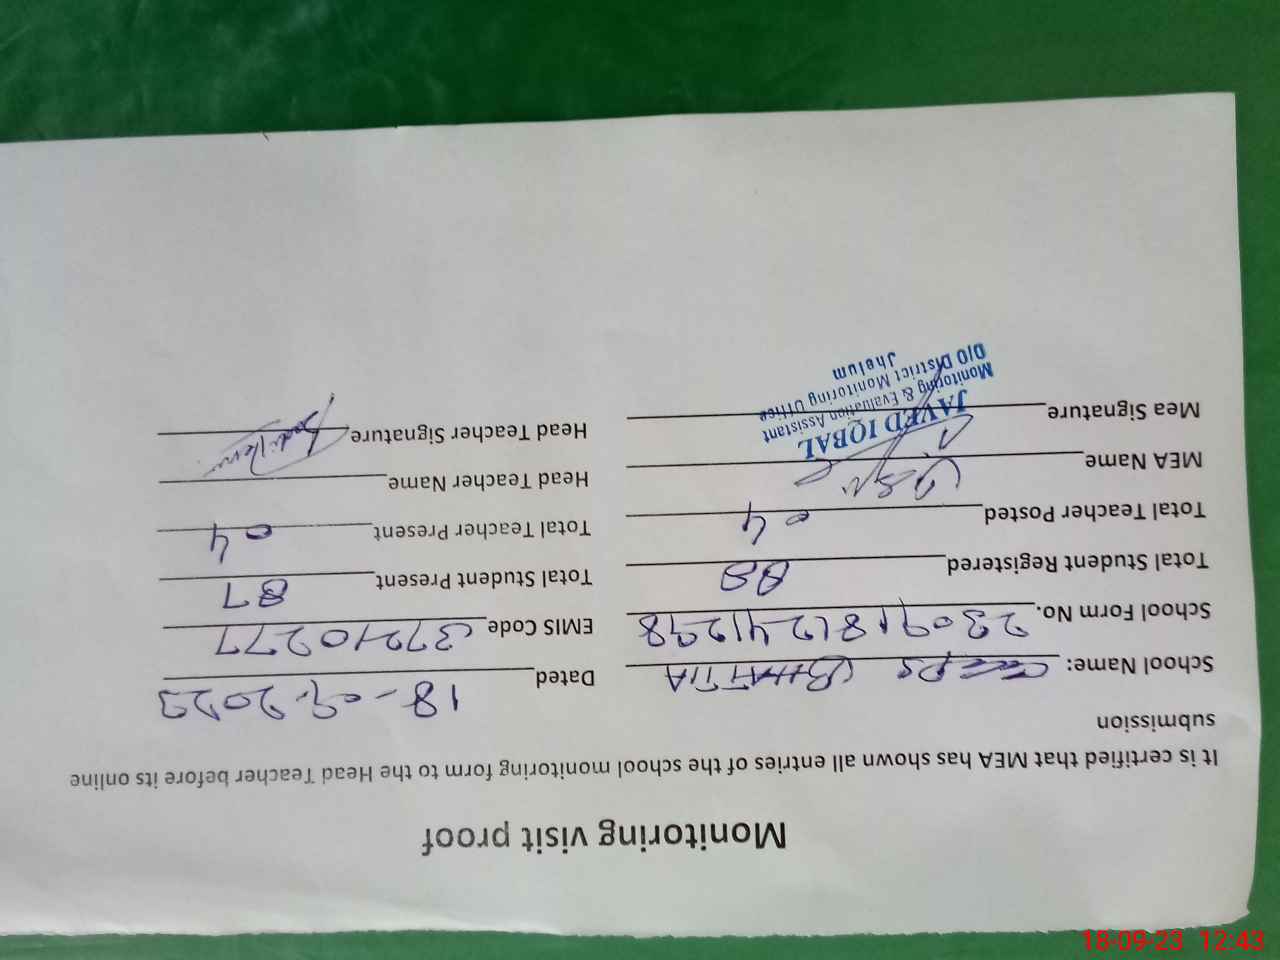 Monitoring visit proof
It is certified that MEA has shown all entries of the school monitoring form to the Head Teacher before its online
submission
School Name: GPS BHATTIA Dated 18-09-2023
School Form No. 2309181241298 EMIS Code 37210277
Total Student Registered 88 Total Student Present 87
Total Teacher Posted 04 Total Teacher Present 04
MEA Name Head Teacher Name
Mea Signature Head Teacher Signature
JAVED IQBAL
Monitoring & Evaluation Assistant
O/O District Monitoring Office
Jhelum
18-09-23 12:43